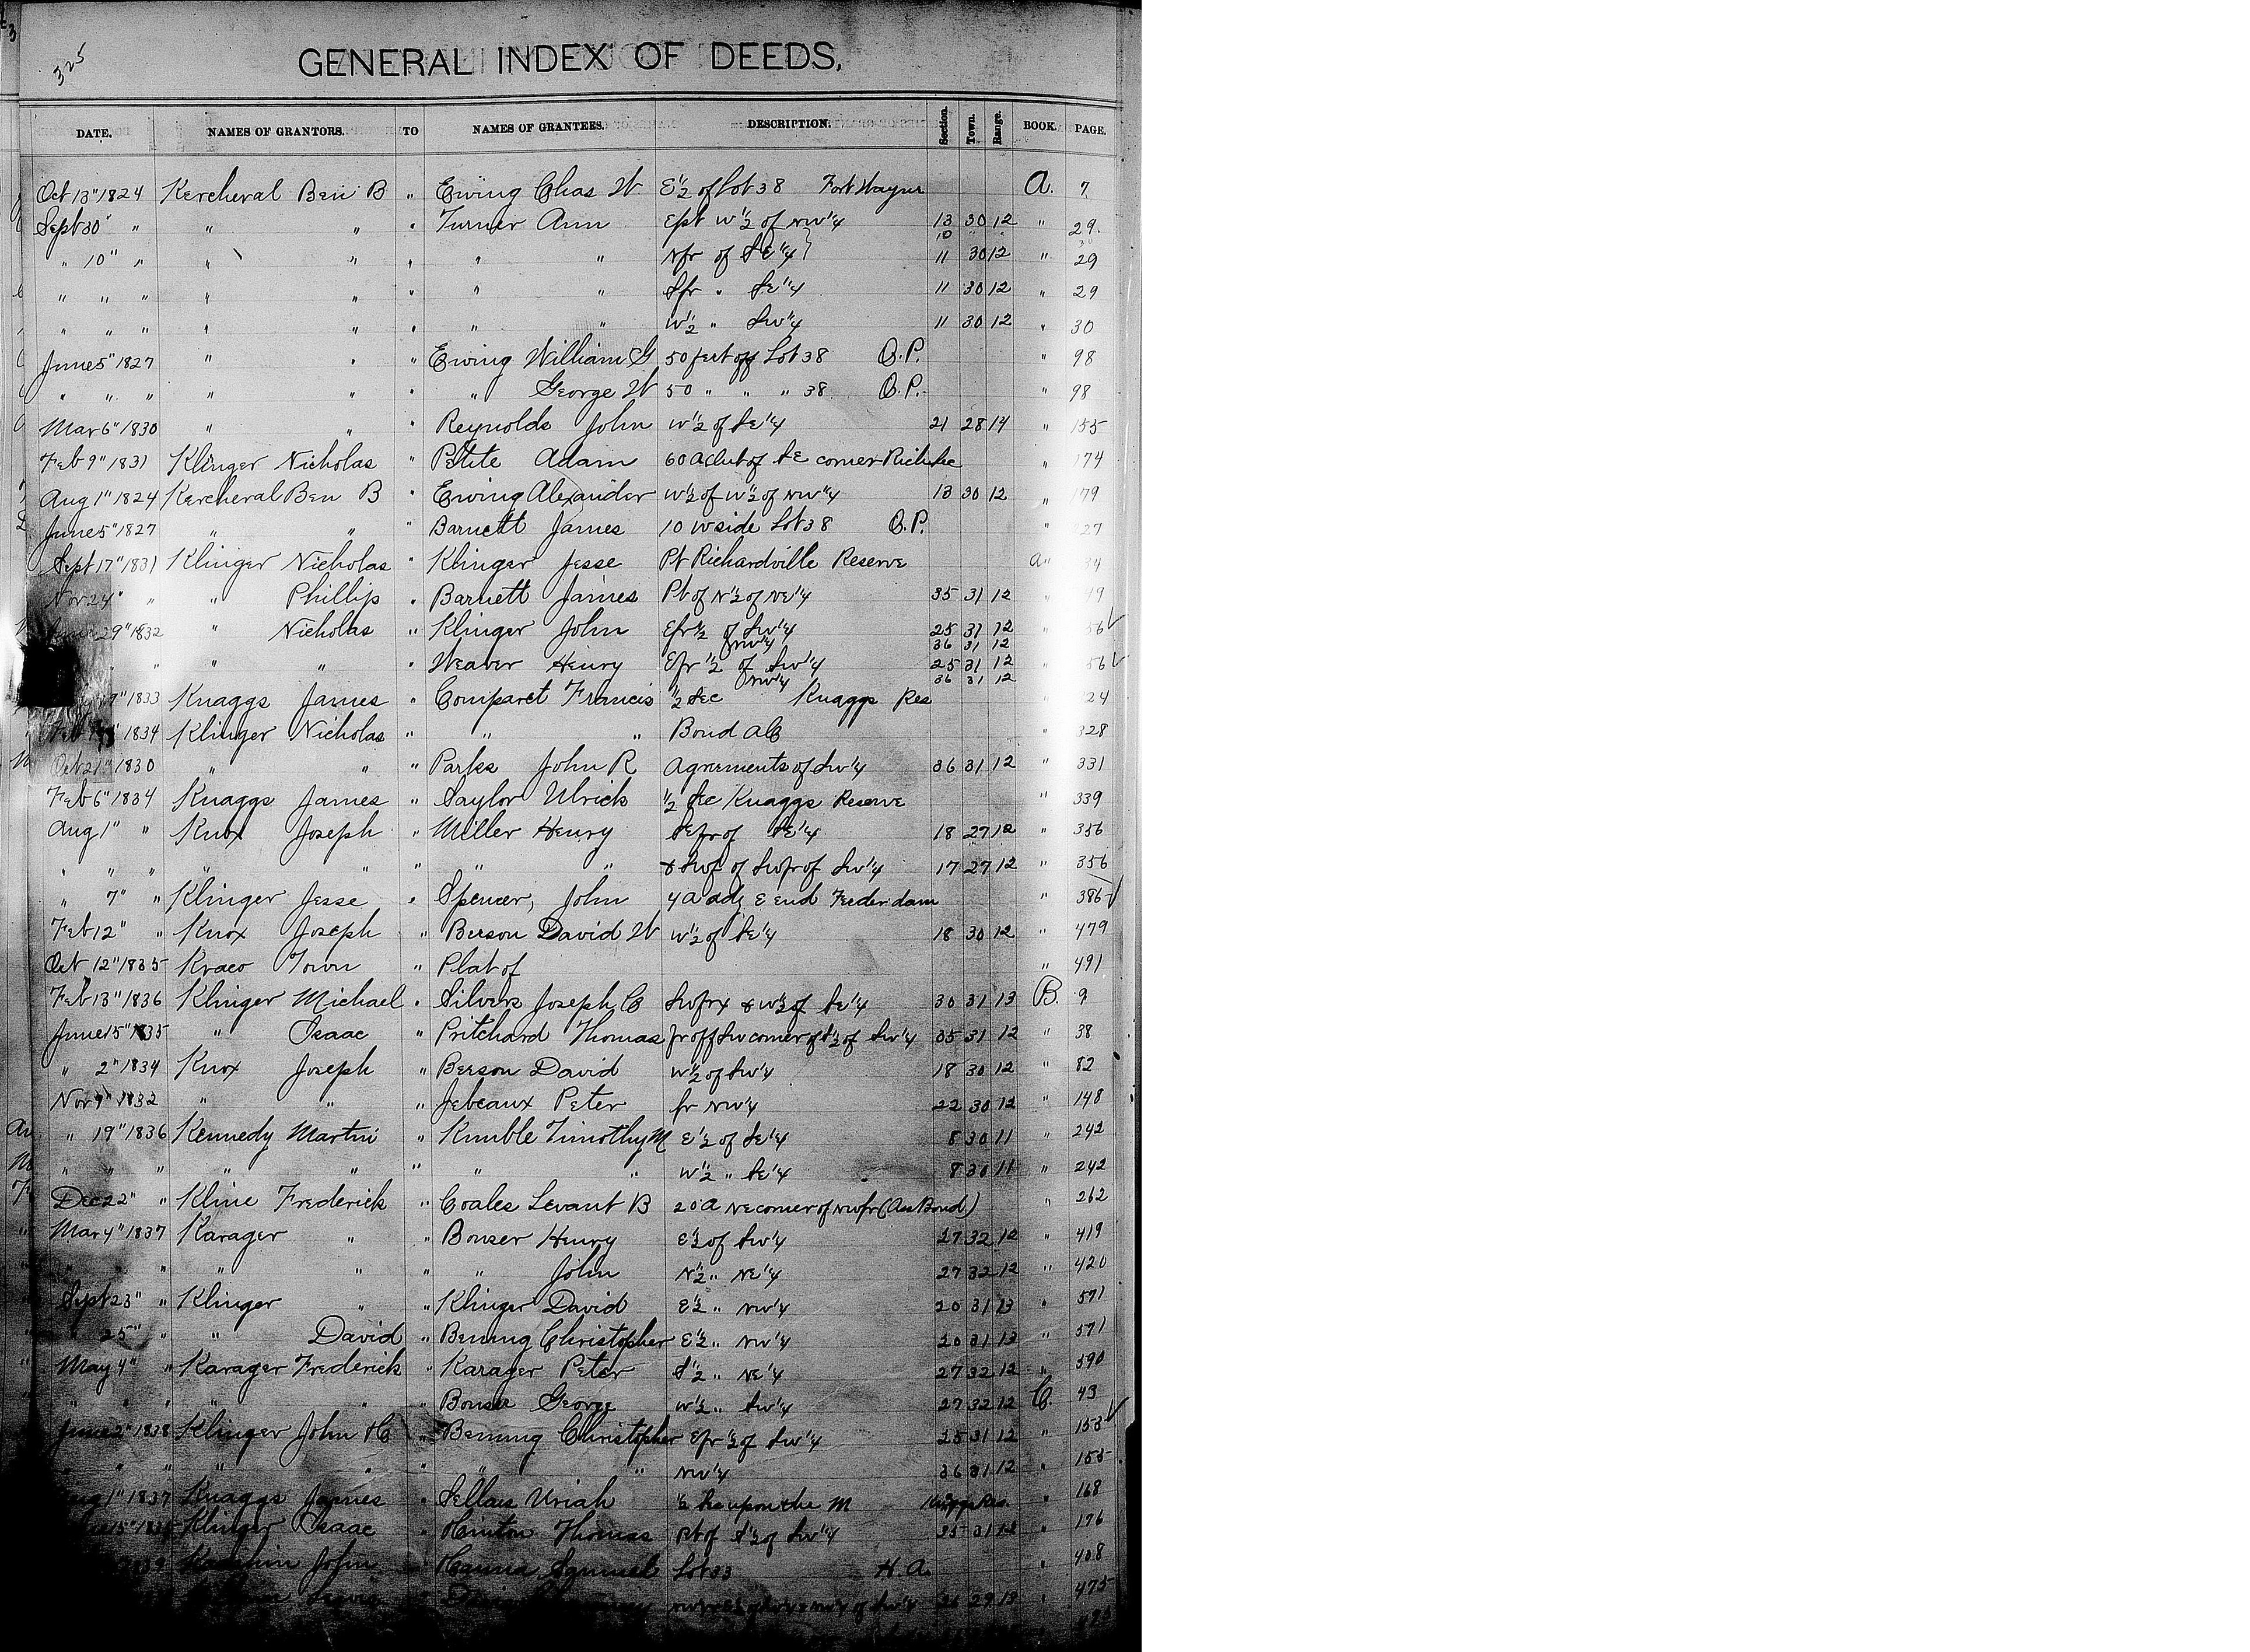 325
GENERAL INDEX OF DEEDS.
DATE. NAMES OF GRANTORS. TO NAMES OF GRANTEES. DESCRIPTION. Section. Town. Range. BOOK. PAGE.
Oct 13" 1824 Kercheval Ben B " Ewing Chas W E 1/2 of Lot 38 Fort Wayne A. 7
Sept 30" " " " " Turner Ann Ept W 1/2 of NW 1/4 13 30 12 " 29.
10 " "
" 10" " " " " " " Nfr of SE 1/4 11 30 12 " 29
" " " " " " " " Sfr " SE 1/4 11 30 12 " 29
" " " " " " " " W 1/2 " SW 1/4 11 30 12 " 30
June 5" 1827 " " " Ewing William G 50 feet off Lot 38 O.P. " 98
" " " " " " " George W 50 " " " 38 O.P. " 98
Mar 6" 1830 " " " Reynolds John W 1/2 of SE 1/4 21 28 14 " 155
Feb 9" 1831 Klinger Nicholas " Petite Adam 60 A of SE corner Rich " 174
Aug 1" 1824 Kercheval Ben B " Ewing Alexander W 1/2 of W 1/2 of NW 1/4 13 30 12 " 179
June 5" 1827 " " " Barnett James 10 W side Lot 38 O.P. " 27
Sept 17" 1831 Klinger Nicholas " Klinger Jesse Pt Richardville Reserve A" 34
Nov 24" " " Phillip " Barnett James Pt of N 1/2 of NE 1/4 35 31 12 " 49
29" 1832 " Nicholas " Klinger John Efr 1/2 of SW 1/4 25 31 12 " 56
NW 1/4 36 31 12
" " " " " Weaver Henry Efr 1/2 of SW 1/4 25 31 12 " 56
NW 1/4 36 31 12
1833 Knaggs James " Comparet Francis 1/2 Sec Knaggs Res " 24
1834 Klinger Nicholas " " " Bond " 328
Oct 21" 1830 " " " Parks John R Agreements of SW 1/4 36 31 12 " 331
Feb 6" 1834 Knaggs James " Saylor Ulrich 1/2 Sec Knaggs Reserve " 339
Aug 1" " Knox Joseph " Miller Henry SEfr of SE 1/4 18 27 12 " 356
" " " " " " " " & of SWfr of SW 1/4 17 27 12 " 356
" 7" " Klinger Jesse " Spencer, John 4 A adj E end Feeder dam " 386
Feb 12" " Knox Joseph " Berson David W W 1/2 of SE 1/4 18 30 12 " 479
Oct 12" 1835 Kraco Town " Plat of " 491
Feb 13" 1836 Klinger Michael " Silvers Joseph C & W 1/2 of SE 1/4 30 31 13 B. 9
June 15" 1835 " Isaac " Pritchard Thomas fr off SW corner of S 1/2 of SW 1/4 35 31 12 " 38
" 2" 1834 Knox Joseph " Berson David W 1/2 of SW 1/4 18 30 12 " 82
Nov 1832 " " " Jebeaux Peter fr NW 1/4 22 30 12 " 148
" 19" 1836 Kennedy Martin " Kimble Timothy M E 1/2 of SE 1/4 8 30 11 " 242
" " " " " " " " W 1/2 " SE 1/4 8 30 11 " 242
Dec 22" " Kline Frederick " Coales Levant B 20 A NE corner of NWfr (As Bond) " 262
Mar 4" 1837 Karager " " Bonser Henry E 1/2 of SW 1/4 27 32 12 " 419
" " " " " " " John N 1/2 " NE 1/4 27 32 12 " 420
Sept 23" " Klinger " " Klinger David E 1/2 " NW 1/4 20 31 13 " 571
" 25" " " David " Bening Christopher E 1/2 " NW 1/4 20 31 13 " 571
May 4" " Karager Frederick " Karager Peter S 1/2 " NE 1/4 27 32 12 " 590
" " " " " " Bonser George W 1/2 " SW 1/4 27 32 12 C. 43
June 2" 1838 Klinger John H C " Bening Christopher Efr 1/2 of SW 1/4 25 31 12 " 153
" " " " " " " NW 1/4 36 31 12 " 155
1" 1837 Knaggs James " Sellars Uriah 1/2 Sec upon the M Knaggs Res. " 168
15" Klinger Isaac " Hinton Thomas pt of S 1/2 of SW 1/4 35 31 12 " 176
John " Hanna Samuel Lot 33 H.A. " 408
of SW 1/4 26 29 13 " 475